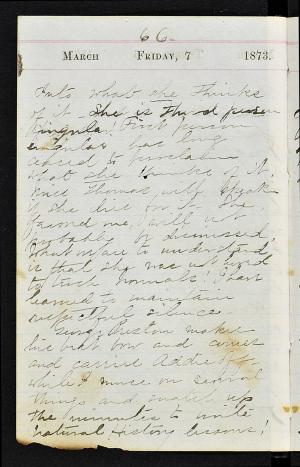 66.
MARCH FRIDAY, 7 1873.
Into what she thinks
of it. She is Third person
singular! First person
singular has long
ceased to proclaim
what she thinks of it,
since Thomas will speak
if she
me, will not
probably be dismissed,
understand,
is that she was
to teach normals! I have
learned to maintain
respectful silence.
Preston makes
his best bow and
and carries Addie off,
while I muse on several
things and snatch up
the minutes to write
natural history lessons!